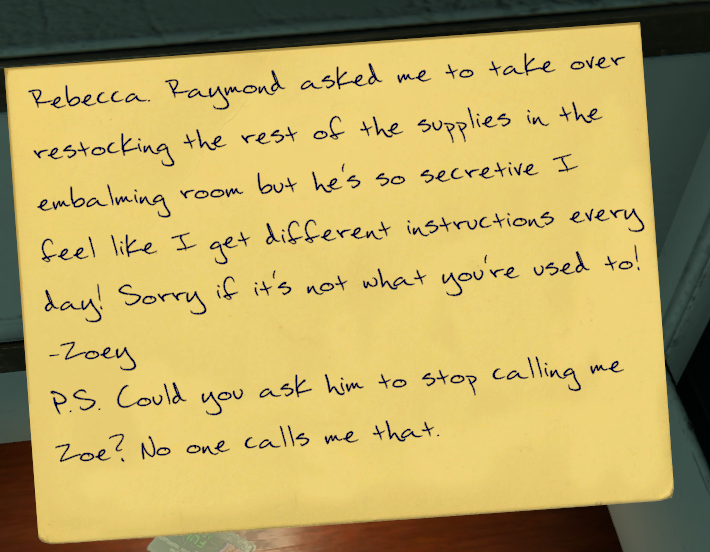 Rebecca. Raymond asked me to take over
restocking the rest of the supplies in the
embalming room but he's so secretive I
feel like I get different instructions every
day! Sorry if it's not what you're used to!
-Zoey
P.S. Could you ask him to stop calling me
Zoe? No one calls me that.